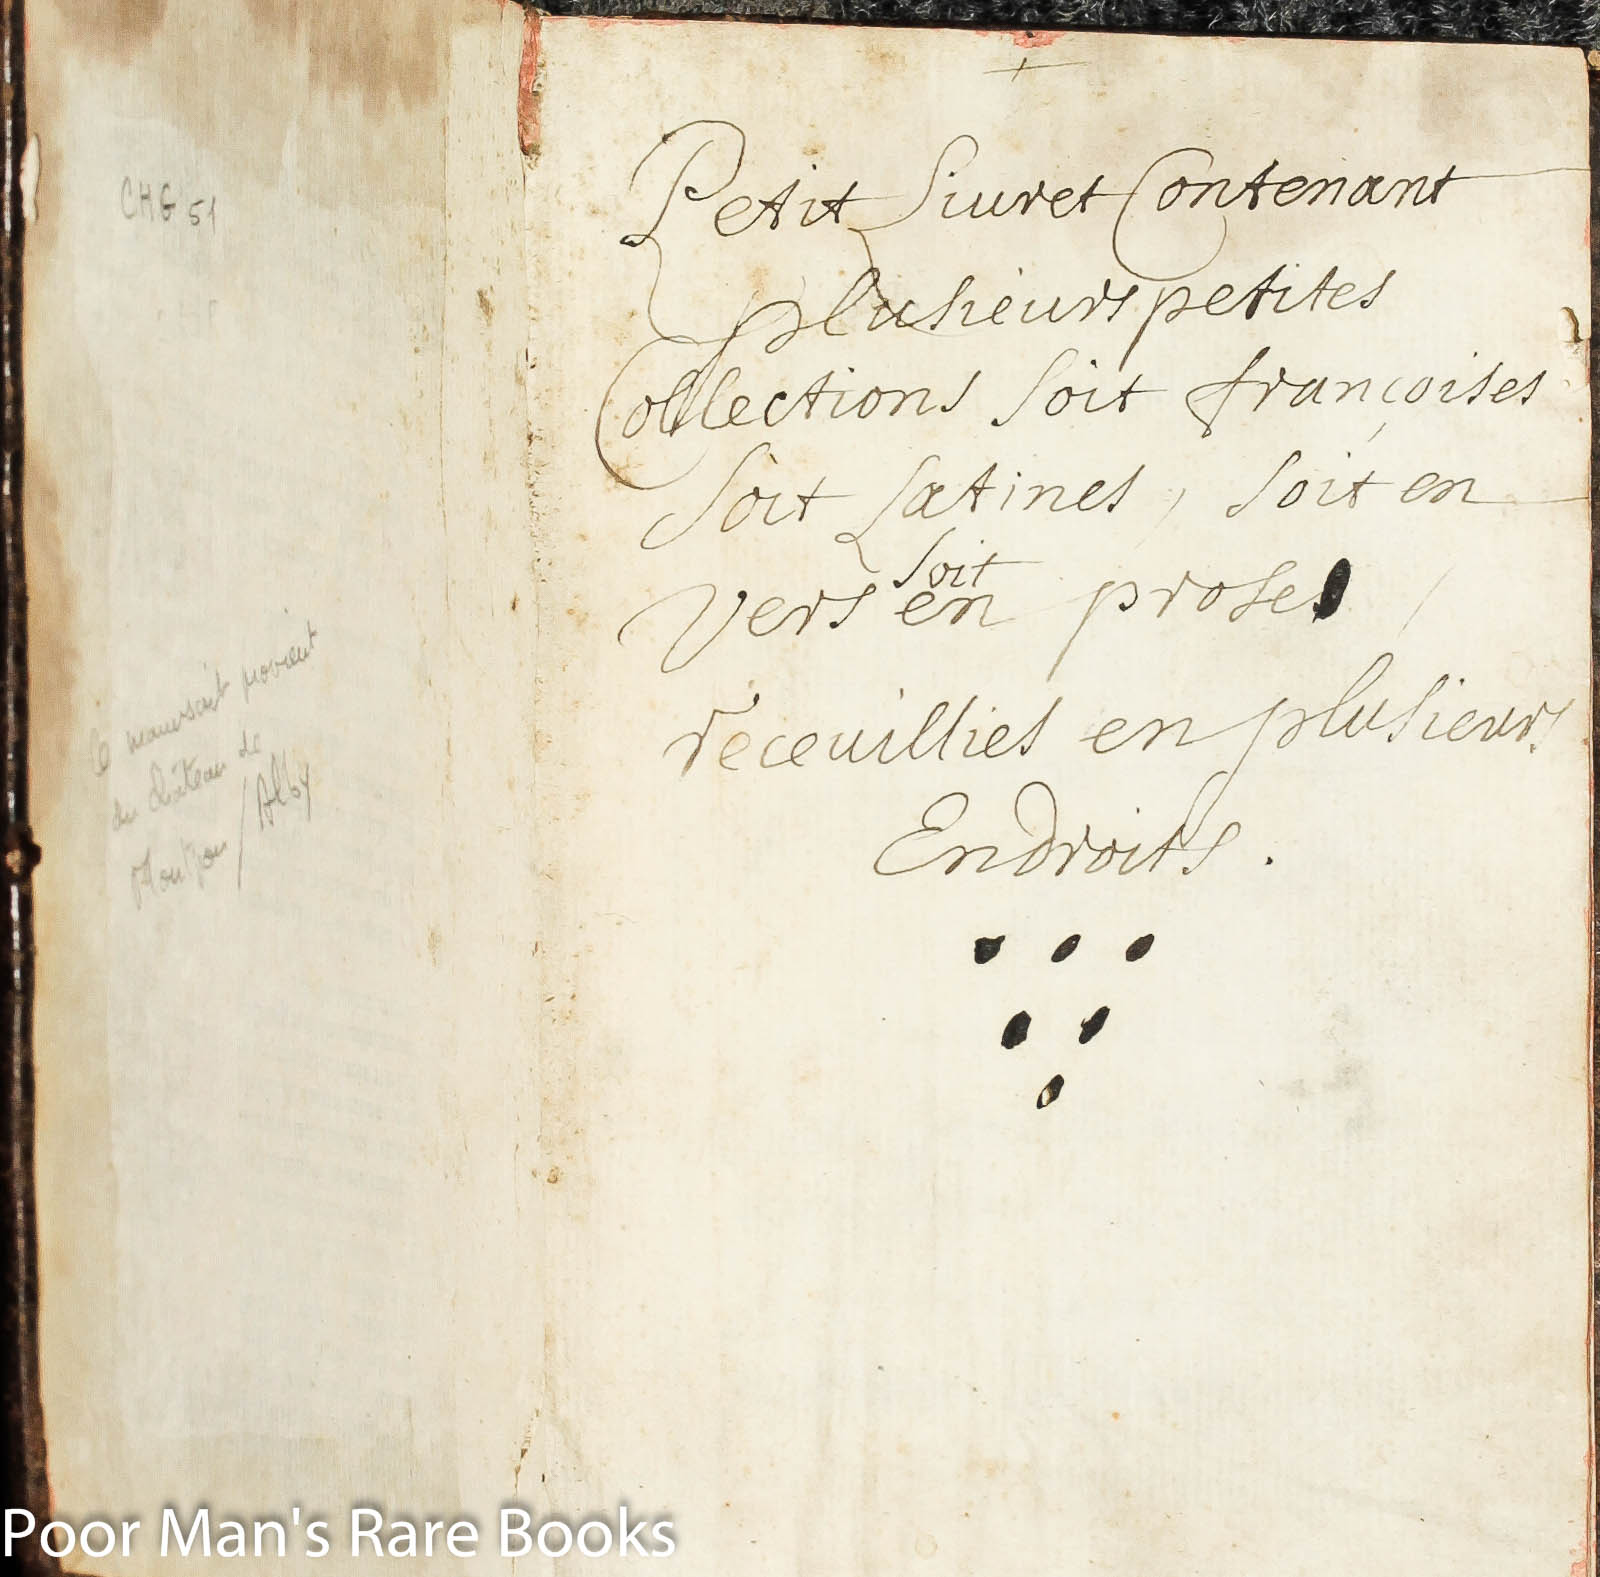 CHG 51
Ce manuscrit provient
du château de
/ Alby
Petit Liuret Contenant
plusieurs petites
Collections soit françoises
soit Latines, soit en
vers soit en prose
receuillies en plusieurs
Endroits.
Poor Man's Rare Books